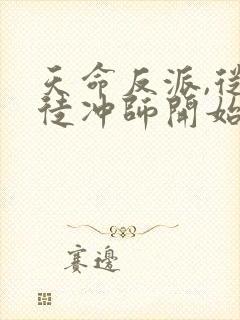 天命反派,從
徒冲師開始
賽邊